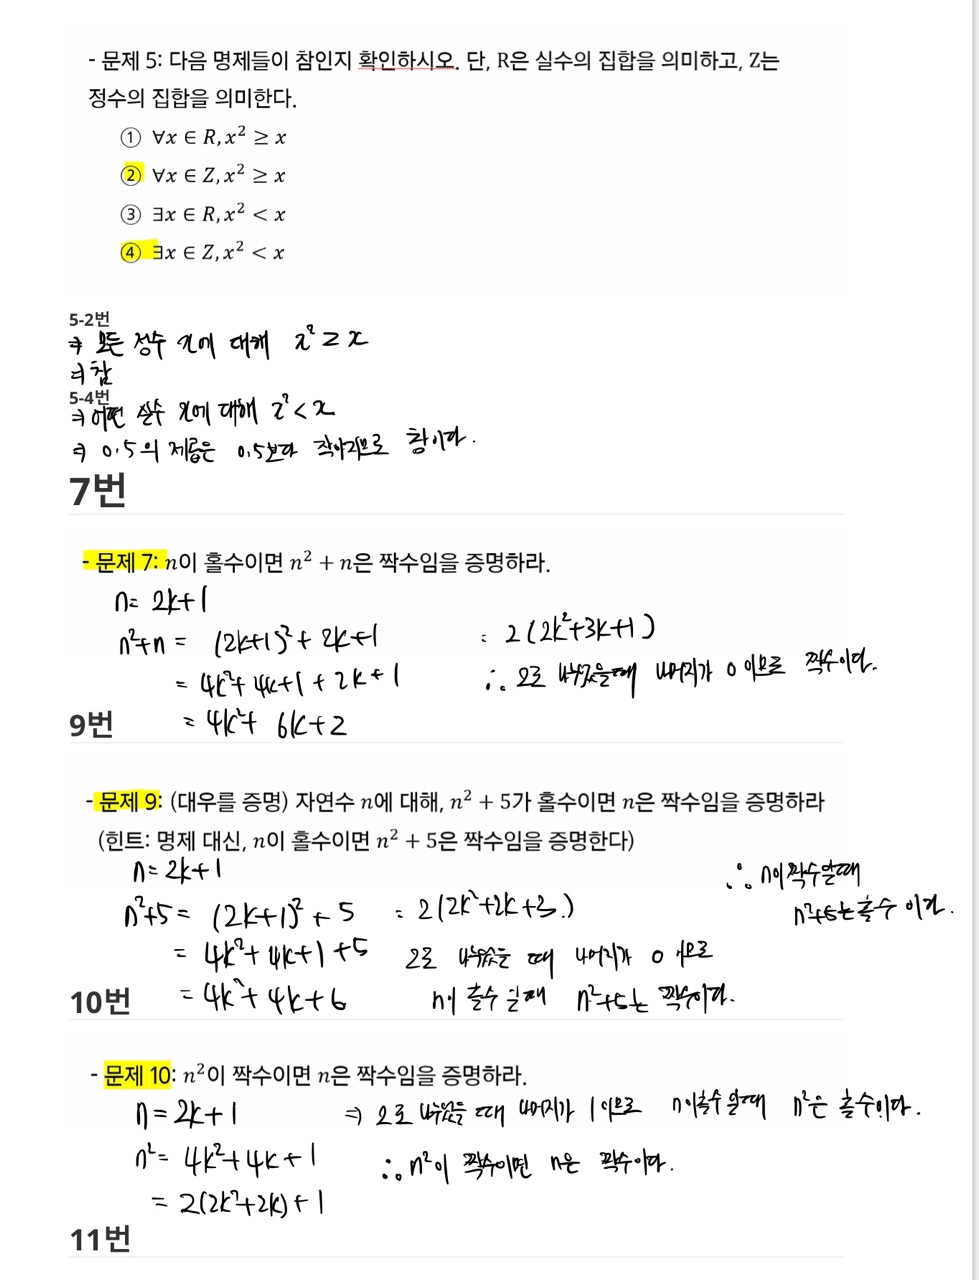 - 문제 5: 다음 명제들이 참인지 확인하시오. 단, R은 실수의 집합을 의미하고, Z는
정수의 집합을 의미한다.
① ∀x ∈ R, x² ≥ x
② ∀x ∈ Z, x² ≥ x
③ ∃x ∈ R, x² < x
④ ∃x ∈ Z, x² < x
5-2번
⇒ 모든 정수 x에 대해 x² ≥ x
⇒ 참
5-4번
⇒ 어떤 실수 x에 대해 x² < x
⇒ 0.5의 제곱은 0.5보다 작아지므로 참이다.
7번
- 문제 7: n이 홀수이면 n² + n은 짝수임을 증명하라.
n = 2k+1
n²+n = (2k+1)² + 2k+1
= 4k² + 4k+1 + 2k+1
= 4k² + 6k+2
= 2(2k²+3k+1)
∴ 2로 나누었을때 나머지가 0 이므로 짝수이다.
9번
- 문제 9: (대우를 증명) 자연수 n에 대해, n² + 5가 홀수이면 n은 짝수임을 증명하라
(힌트: 명제 대신, n이 홀수이면 n² + 5은 짝수임을 증명한다)
n = 2k+1
n²+5 = (2k+1)² + 5
= 4k² + 4k+1 +5
= 4k² + 4k+6
= 2(2k²+2k+3.)
2로 나누었을 때 나머지가 0 이므로
n이 홀수 일때 n²+5는 짝수이다.
∴ n이 짝수일때
n²+5는 홀수 이다.
10번
- 문제 10: n²이 짝수이면 n은 짝수임을 증명하라.
n = 2k+1
n² = 4k²+4k+1
= 2(2k²+2k)+1
⇒ 2로 나누었을 때 나머지가 1 이므로 n이 홀수 일때 n²은 홀수이다.
∴ n²이 짝수이면 n은 짝수이다.
11번